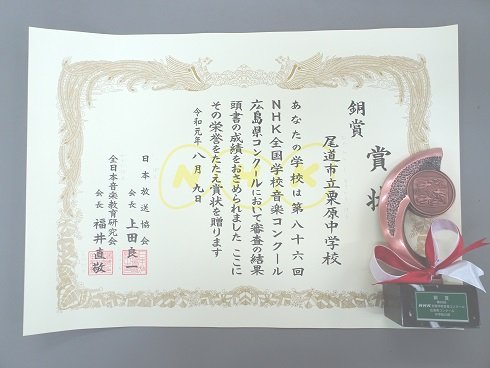 賞状
銅賞
尾道市立栗原中学校
あなたの学校は第八十六回
NHK全国学校音楽コンクール
広島県コンクールにおいて審査の結果
頭書の成績をおさめられました ここに
その栄誉をたたえ賞状を贈ります
令和元年八月九日
日本放送協会
会長 上田良一
全日本音楽教育研究会
会長 福井直敬
NHK
銅賞